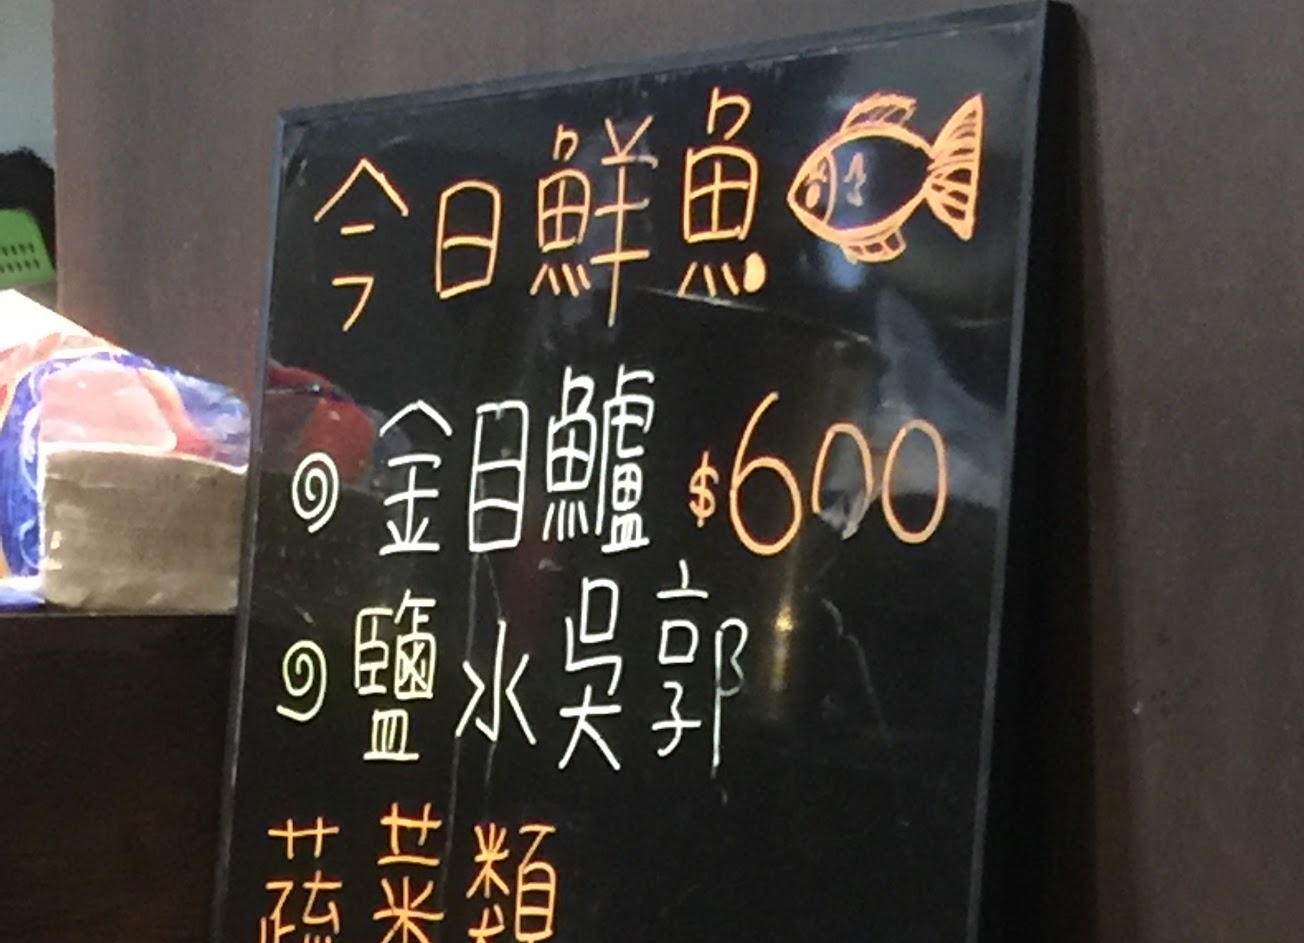 今日鮮魚
金目鱸 $600
鹽水吳郭
蔬菜類